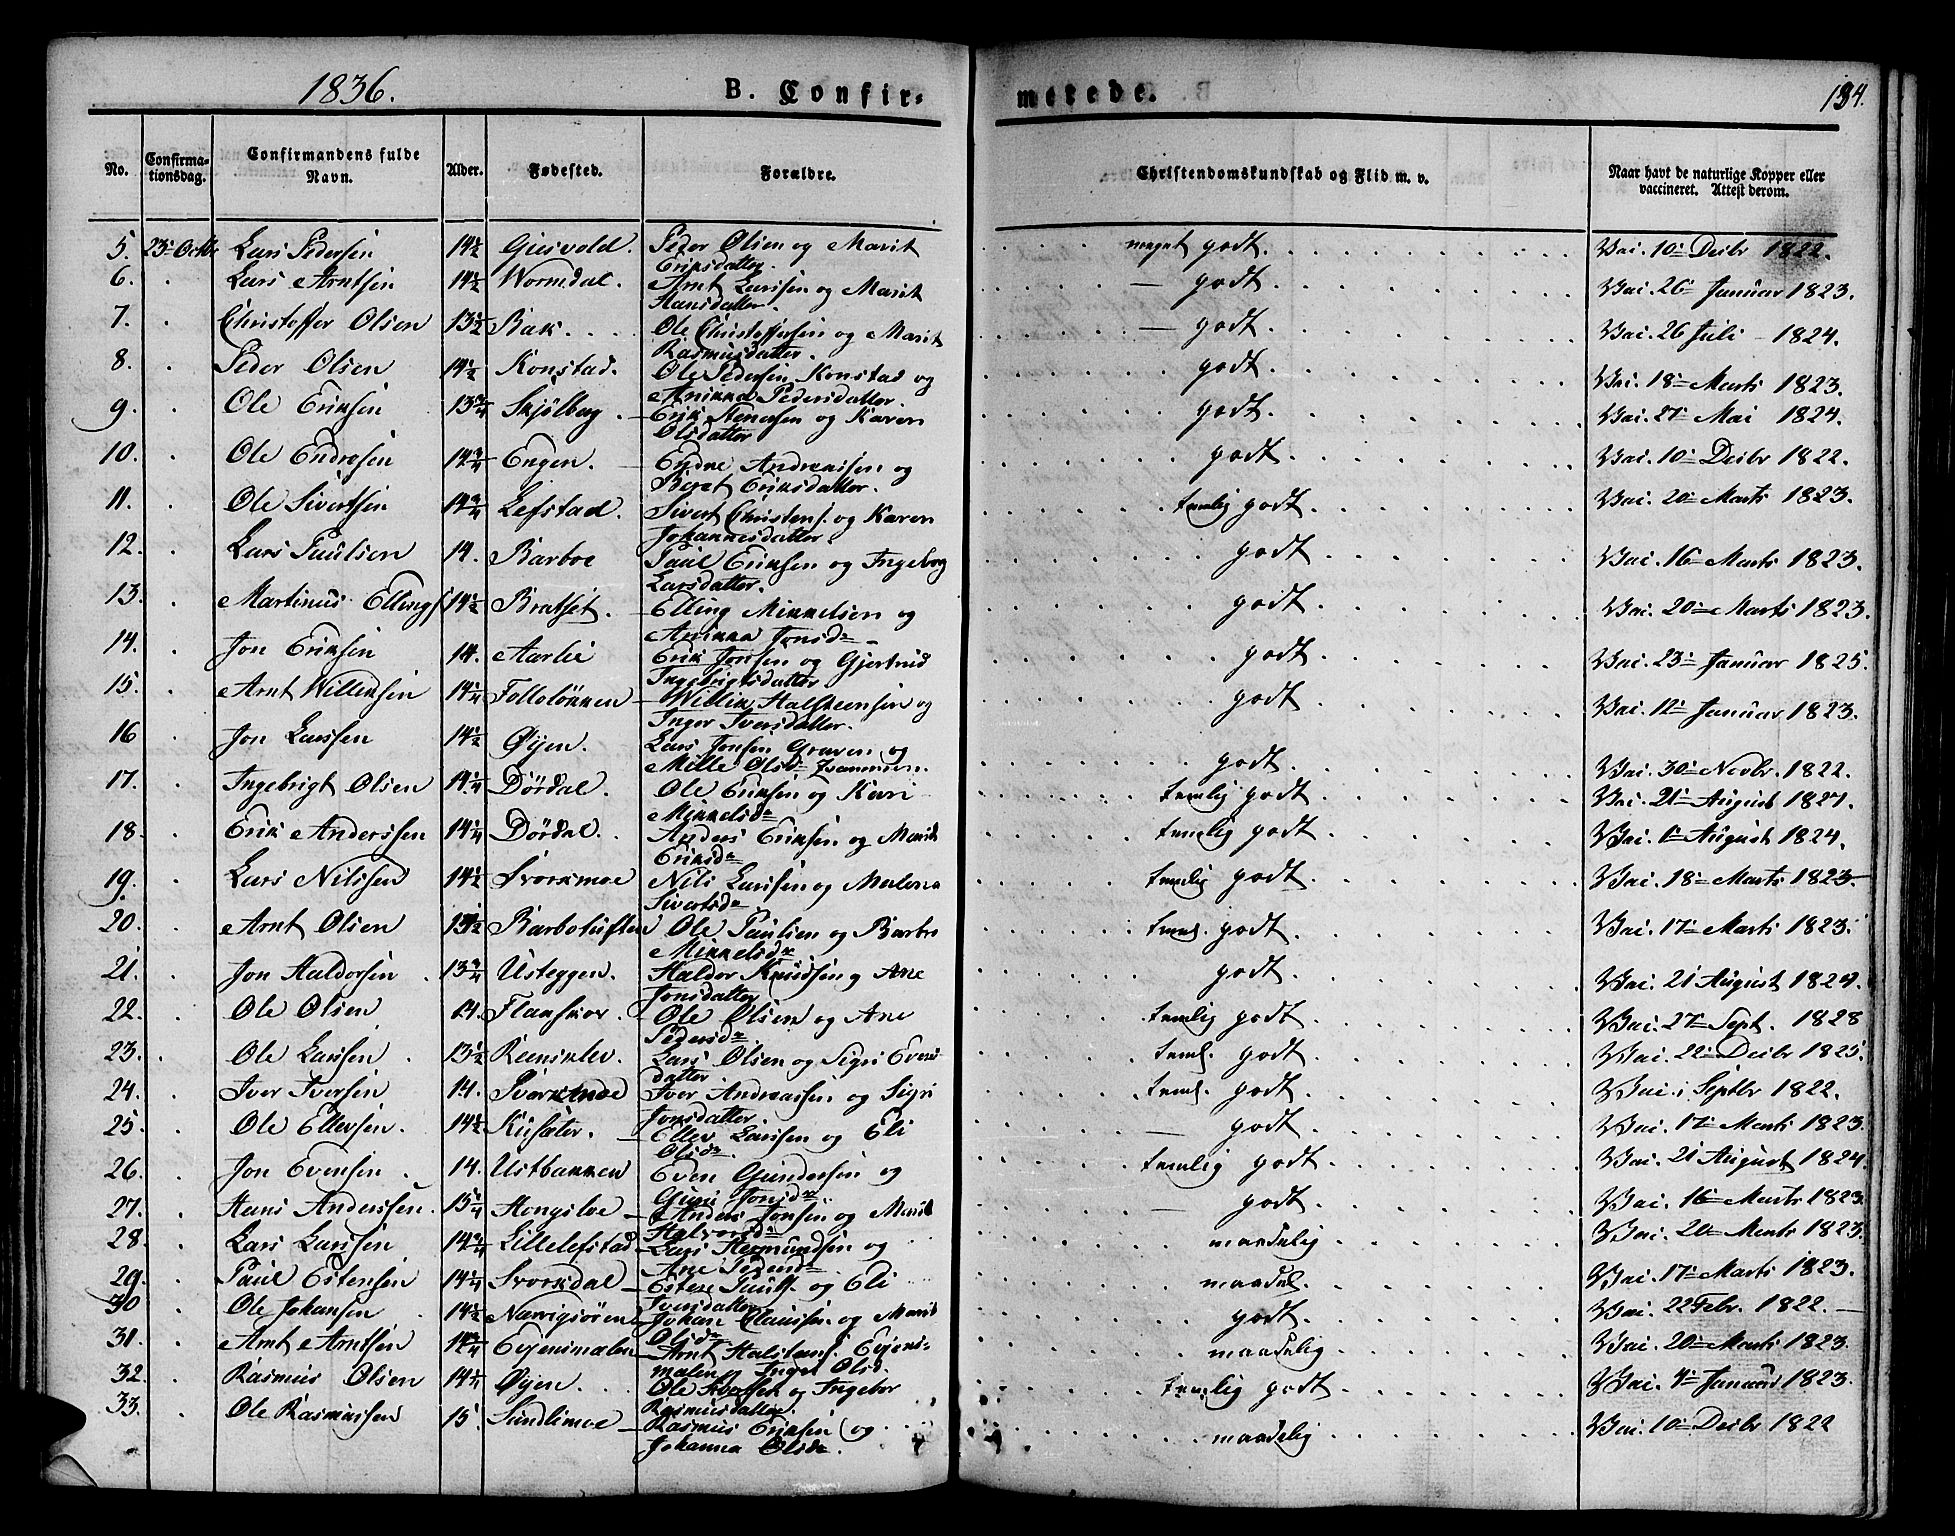 1836. B. Confirmerede. 134.
No. Confirmationsdag. Confirmandens fulde Navn. Alder. Fødested. Forældre. Christendomskundskab og Flid m. v. Naar havt de naturlige Kopper eller vaccineret. Attest derom.
5. 23de Octbr Lars Pedersen 14 1/2 Giesvold. Peder Olsen og Marit Eriksdatter. meget godt. Vac. 10de Decbr 1822.
6. Lars Arntsen 14 1/2 Wormdal. Arnt Larssen og Marit Hansdatter. — godt. Vac. 26de Januar 1823.
7. Christoffer Olsen 13 1/2 Bak. Ole Christoffersen og Marit Rasmusdatter. — godt. Vac. 26 Juli 1824.
8. Peder Olsen 14 1/2 Konstad. Ole Pedersen Konstad og Anikka Pedersdatter. godt. Vac. 18de Marts 1823.
9. Ole Eriksen 13 3/4 Skjølberg. Erik Stenersen og Karen Olsdatter godt. Vac. 27de Mai 1824.
10. Ole Endresen 14 3/4 Engen. Endre Andreassen og Beret Eriksdatter. godt. Vac. 10de Decbr 1822.
11. Ole Sivertsen 14 3/4 Lefstad. Sivert Christens. og Karen Johannesdatter. temlig godt. Vac. 20de Marts 1823.
12. Lars Paulsen 14. Barboe Paul Eriksen og Ingeborg Larsdatter. godt. Vac. 16de Marts 1823.
13. Martinus Ellingsf 14 1/2 Bratset. Elling Mikkelsen og Anikka Jonsd. godt. Vac. 20de Marts 1823.
14. Jon Eriksen 14. Aarlie Erik Jonsen og Gjertrud Ingebrigtsdatter godt. Vac. 23de Januar 1825.
15. Arnt Willeksen 14 1/4 Follolökken Willik Halsteensen og Inger Iversdatter. godt. Vac. 12de Januar 1823.
16 Jon Larssen 14 1/2 Øyen. Lars Jonsen Graven og Mille Olsd. godt. Vac. 30de Novbr. 1822.
17. Ingebrigt Olsen 14 1/4 Dördal. Ole Eriksen og Kari Mikkelsd. temlig godt. Vac. 21de August 1824.
18. Erik Anderssen 14 1/4 Dördal. Anders Eriksen og Marit Eriksd. temlig godt. Vac. August 1824.
19. Lars Nilssen 14 1/2 Svorkmoe Nils Larssen og Malena Sivertsd. temlig godt. Vac. 18de Marts 1823
20. Arnt Olsen 13 1/2 Barbotuften Ole Paulsen og Barbro Mikkelsd. teml. godt. Vac. 17de Marts 1823.
21. Jon Haldorsen 13 3/4 Usteggen. Haldor Knudsen og Ane Jonsdatter godt. Vac. 21 August 1824.
22. Ole Olsen 14. Flaaskor. Ole Olsen og Ane Pedersd. temlig godt. Vac. 27de Sept. 1828
23. Ole Larssen 13 1/2 Reensklev. Lars Olsen og Sigri Evensdatter. teml. godt. Vac. 22de Decbr 1825.
24. Iver Iversen 14. Svorkmoe Iver Andreassen og Sigri Jonsdatter. teml. godt. Vac. i Septbr 1822.
25. Ole Ellevsen. 14 1/2 Kusæter. Ellev Larssen og Eli Olsd. — godt. Vac. 17de Marts 1823.
26. Jon Evensen 14. Ustbakken Even Gundersen og Guri Jonsd. temlig godt. Vac. 21 August 1824.
27. Hans Anderssen. 15 1/4 Hongsloe Anders Jonsen og Marit Halvorsd. — godt. Vac. 16de Marts 1823.
28. Lars Larssen 14 3/4 Lillelefstad Lars Hermundsen og Ane Pedersd. maadelig Vac. 20de Marts 1823.
29. Paul Estensen 14 1/4 Svorkdal Esten Pauls. og Eli Iversdatter maadel. Vac. 17de Marts 1823.
30 Ole Johansen 14 1/2 Narvigsören Johan Claussen og Marit Olsd. godt. Vac. 22 Febr. 1822.
31. Arnt Arntsen 14 3/4 Evjensmalen Arnt Halstens. Evjensmalen og Inger Olsd. maadelig Vac. 20de Marts 1823.
32. Rasmus Olsen 14 1/4 Øyen. Ole og Ingebor Rasmusdatter. temlig godt. Vac. 4de Januar 1823.
33. Ole Rasmussen 15. Sundlimoe Rasmus Eriksen og Johanna Olsd. maadelig Vac. 10de Decbr 1822